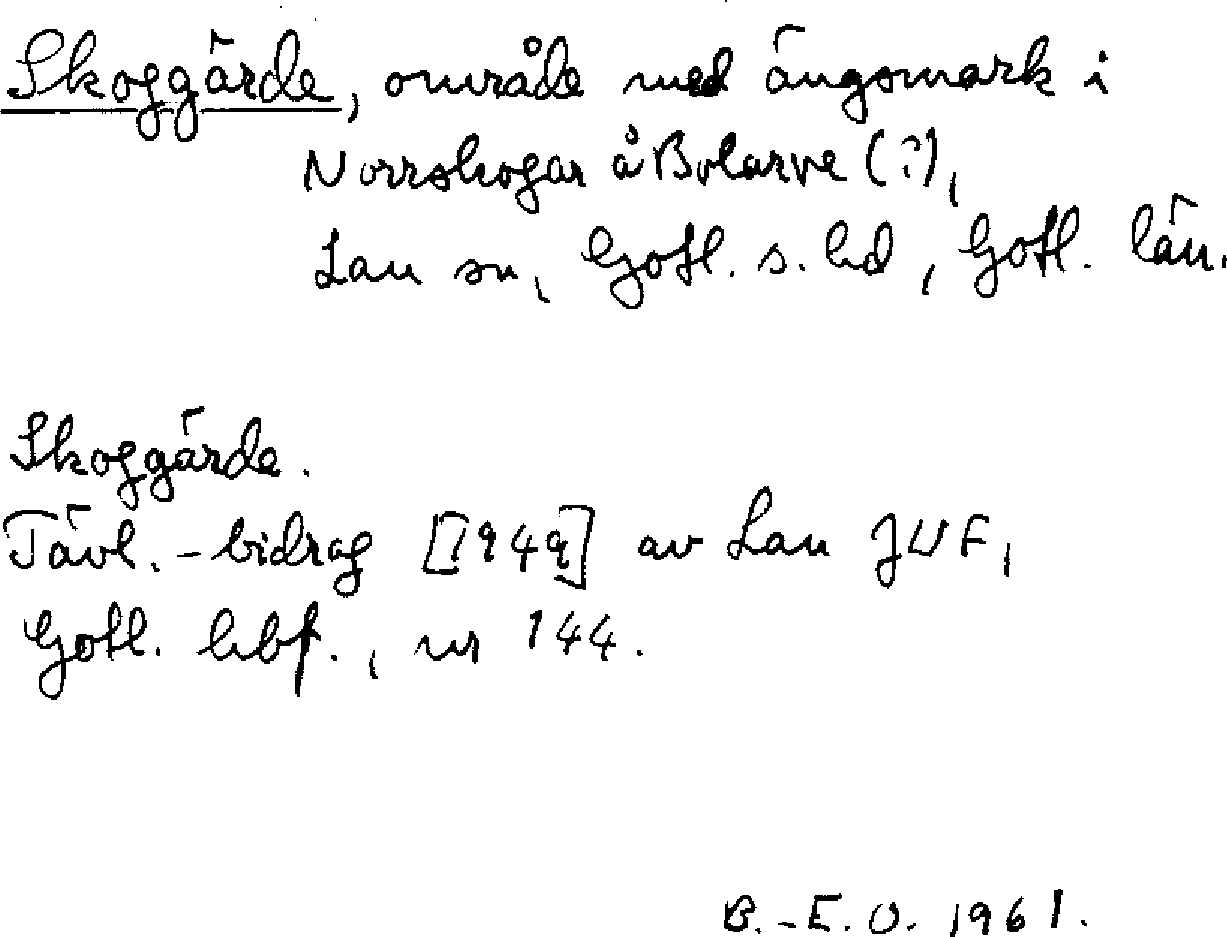 Skoggärde, område med ängsmark i
Norrskogar å Bolarve (?),
Lau sn, Gotl. s. hd, Gotl. län.
Skoggärde.
Tävl.-bidrag [1949] av Lau JUF,
Gotl. hbf., nr 144.
B.-E. O. 1961.